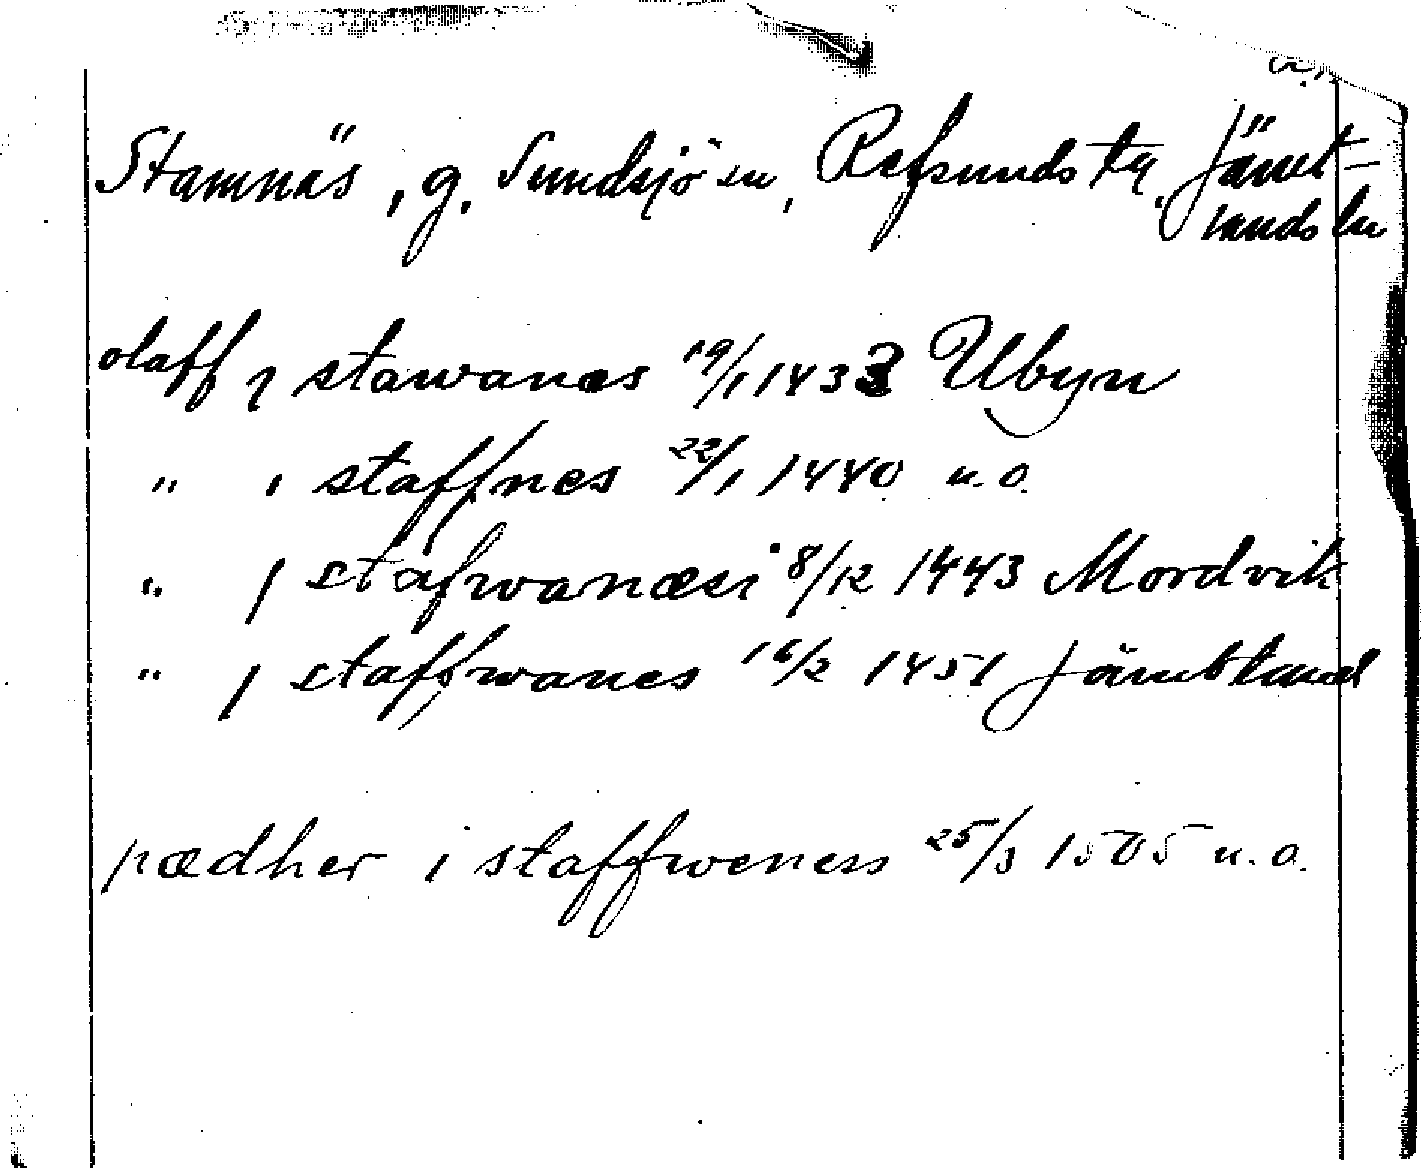 Stamnäs, g. Sundsjö sn, Refsunds tg. Jämt-
lands ln
olaff j stawanæs 19/1 1433 Ubyn
" i staffnes 22/1 1440 u.o.
" j stafwanæsi 8/12 1443 Mordvik
" j staffwanes 16/2 1451 Jämbtland
pædher i staffweness 25/3 1505 u.o.